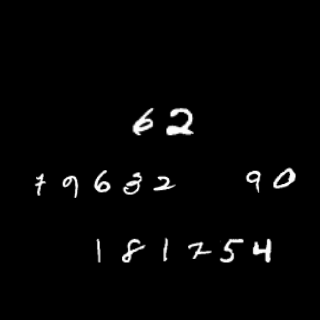 62
79632 90
181754